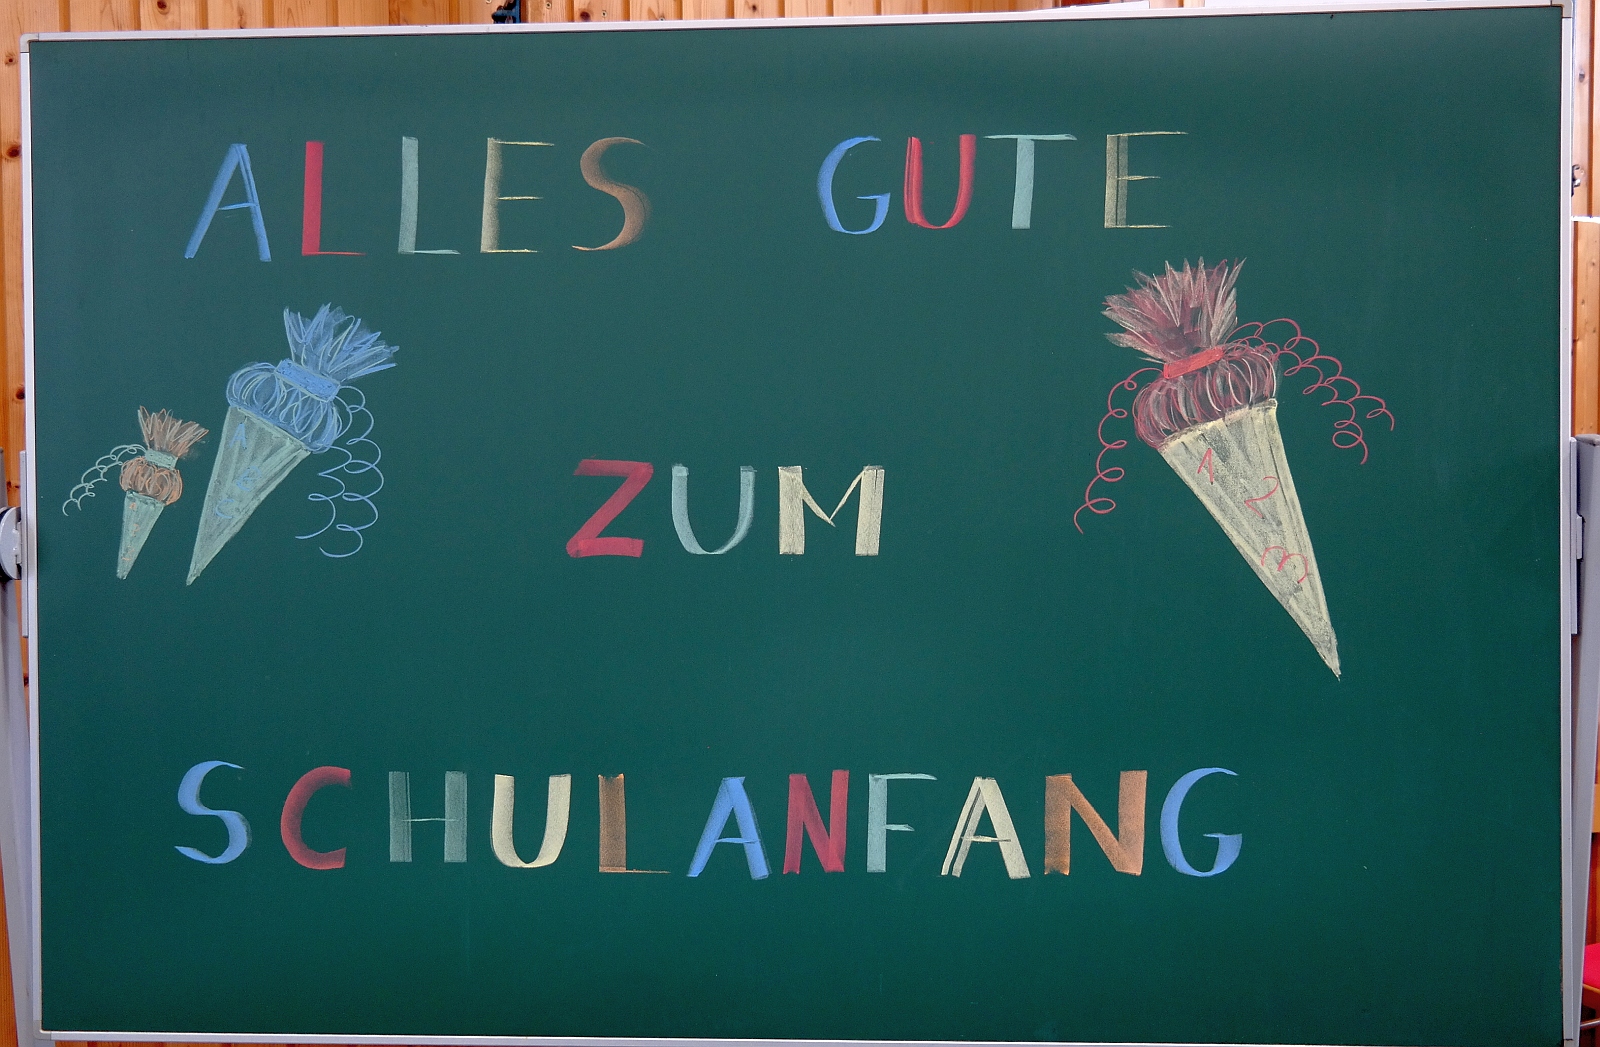 ALLES GUTE
ZUM
SCHULANFANG
1
2
3